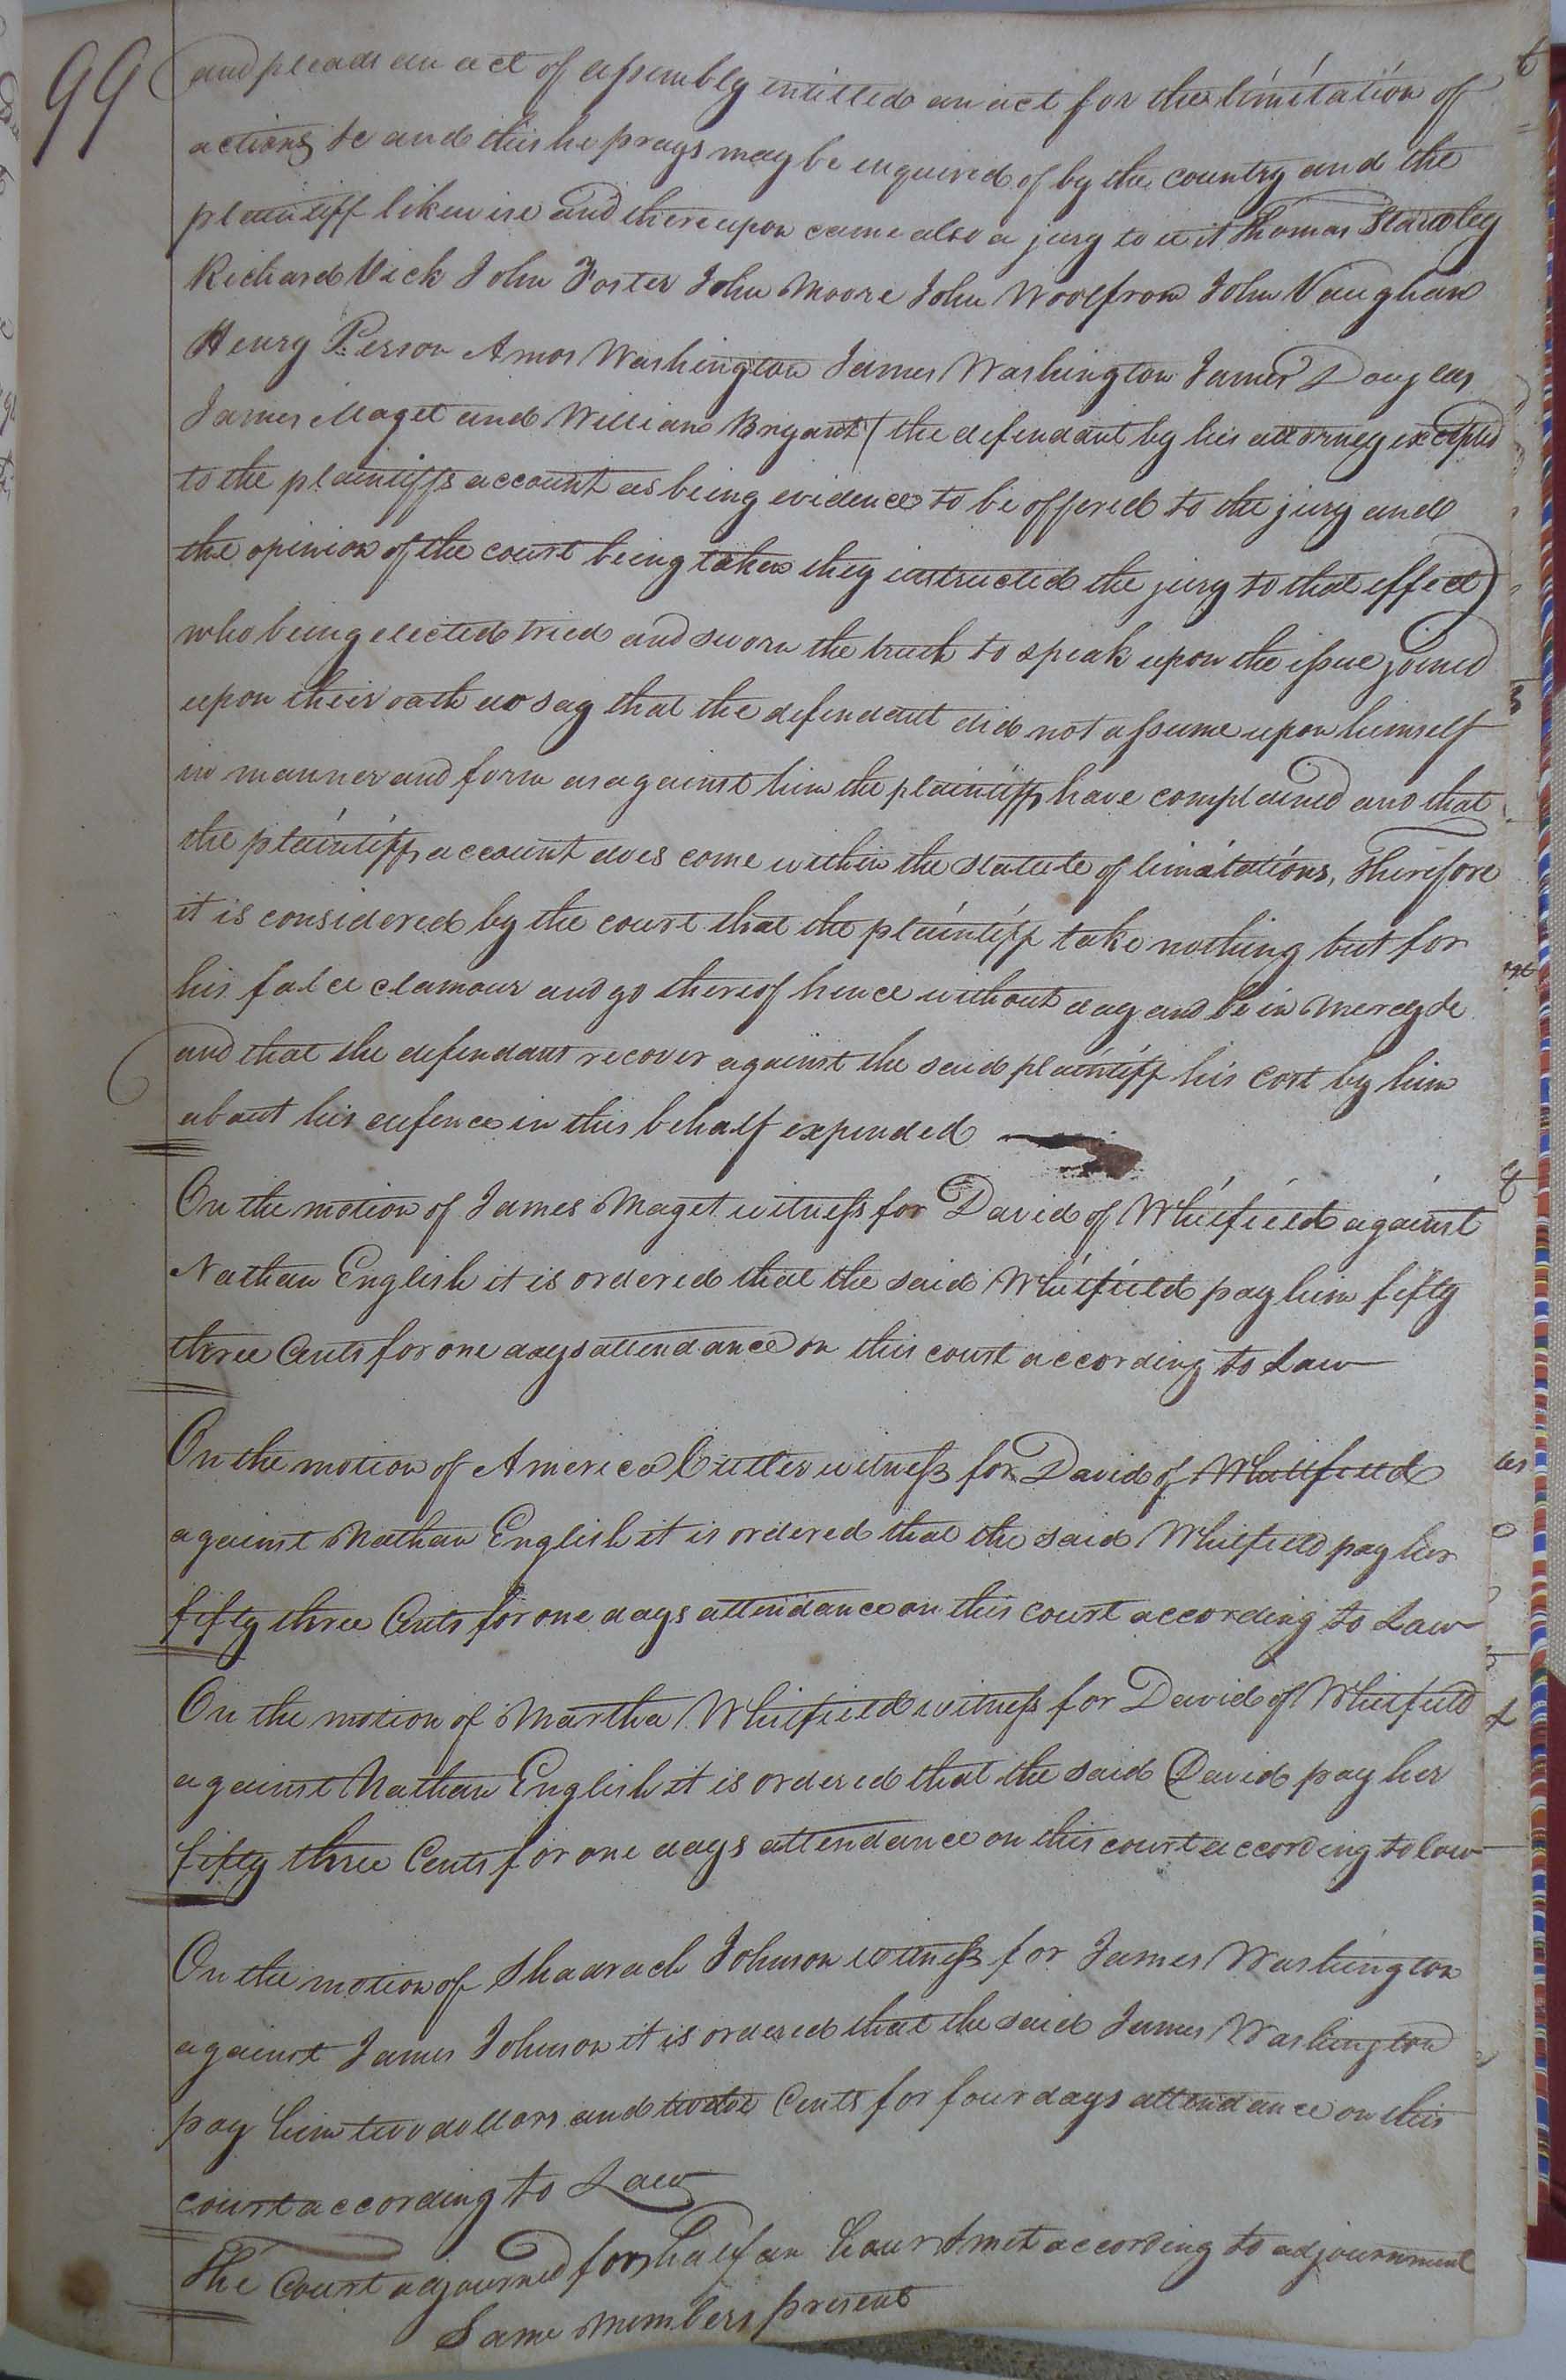 99
and pleads an act of assembly intitled an act for the limitation of
actions &c and this he prays may be enquired of by the country and the
plaintiff likewise and thereupon came also a jury to wit Thomas Standley
Richard Vick John Foster John Moore John Woolfrom John Vaughan
Henry Person Amos Washington James Washington James Douglas
James Maget and William Bryant (the defendant by his attorney excepted
to the plaintiffs account as being evidence to be offered to the jury and
the opinion of the court being taken they instructed the jury to that effect)
who being elected tried and sworn the truth to speak upon the issue joined
upon their oath do say that the defendant did not assume upon himself
in manner and form as against him the plaintiff have complained and that
the plaintiffs account does come within the statute of limitations, Therefore
it is considered by the court that the plaintiff take nothing but for
his false clamour and go thereof hence without day and be in mercy &c
and that the defendant recover against the said plaintiff his cost by him
about his defence in this behalf expended
On the motion of James Maget witness for David of Whitfield against
Nathan English it is ordered that the said Whitfield pay him fifty
three Cents for one days attendance on this court according to Law
On the motion of America Butler witness for David of Whitfield
against Nathan English it is ordered that the said Whitfield pay her
fifty three Cents for one days attendance on this court according to Law
On the motion of Martha Whitfield witness for David of Whitfield
against Nathan English it is ordered that the said David pay her
fifty three Cents for one days attendance on this court according to law
On the motion of Shadrach Johnson witness for James Washington
against James Johnson it is ordered that the said James Washington
pay him two dollars and twelve Cents for four days attendance on this
court according to Law
The Court adjourned for half an hour & met according to adjournment
Same members present